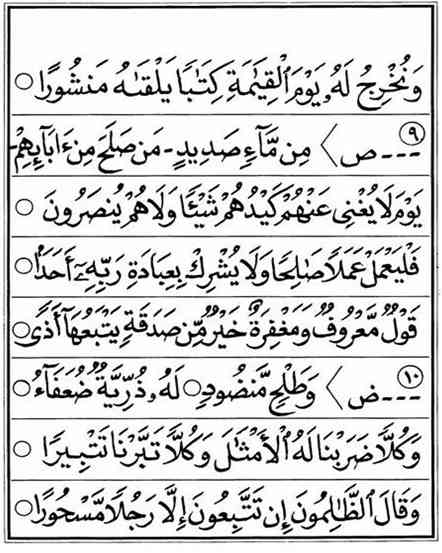 وَنُخْرِجُ لَهُۥ يَوْمَ ٱلْقِيَٰمَةِ كِتَٰبًا يَلْقَىٰهُ مَنشُورًا ○
٩ --- ص〉 مِن مَّآءٍ صَدِيدٍ - مَن صَلَحَ مِنْ ءَابَآئِهِمْ -
يَوْمَ لَا يُغْنِى عَنْهُمْ كَيْدُهُمْ شَيْـًٔا وَلَا هُمْ يُنصَرُونَ ○
فَلْيَعْمَلْ عَمَلًا صَٰلِحًا وَلَا يُشْرِكْ بِعِبَادَةِ رَبِّهِۦٓ أَحَدًۢا ○
قَوْلٌ مَّعْرُوفٌ وَمَغْفِرَةٌ خَيْرٌ مِّن صَدَقَةٍ يَتْبَعُهَآ أَذًى ○
١٠ --- ض〉 وَطَلْحٍ مَّنضُودٍ ○ لَهُۥ ذُرِّيَّةٌ ضُعَفَآءُ ○
وَكُلًّا ضَرَبْنَا لَهُ ٱلْأَمْثَٰلَ وَكُلًّا تَبَّرْنَا تَتْبِيرًا ○
وَقَالَ ٱلظَّٰلِمُونَ إِن تَتَّبِعُونَ إِلَّا رَجُلًا مَّسْحُورًا ○